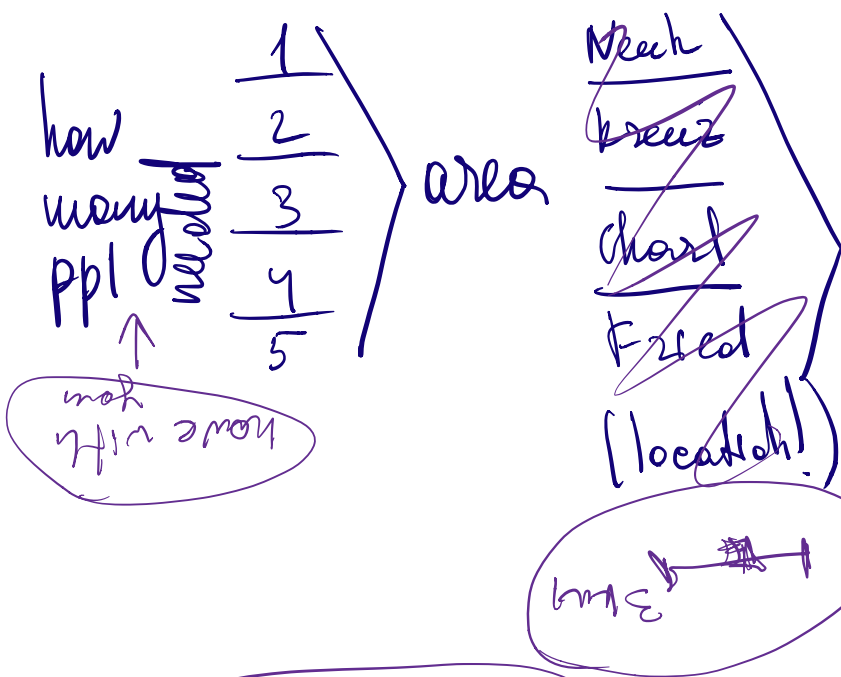 how
many
ppl
needed
1
2
3
4
5
area
Neuk
kreuz
Charl
Fried
(location!)
have with
you
3 km